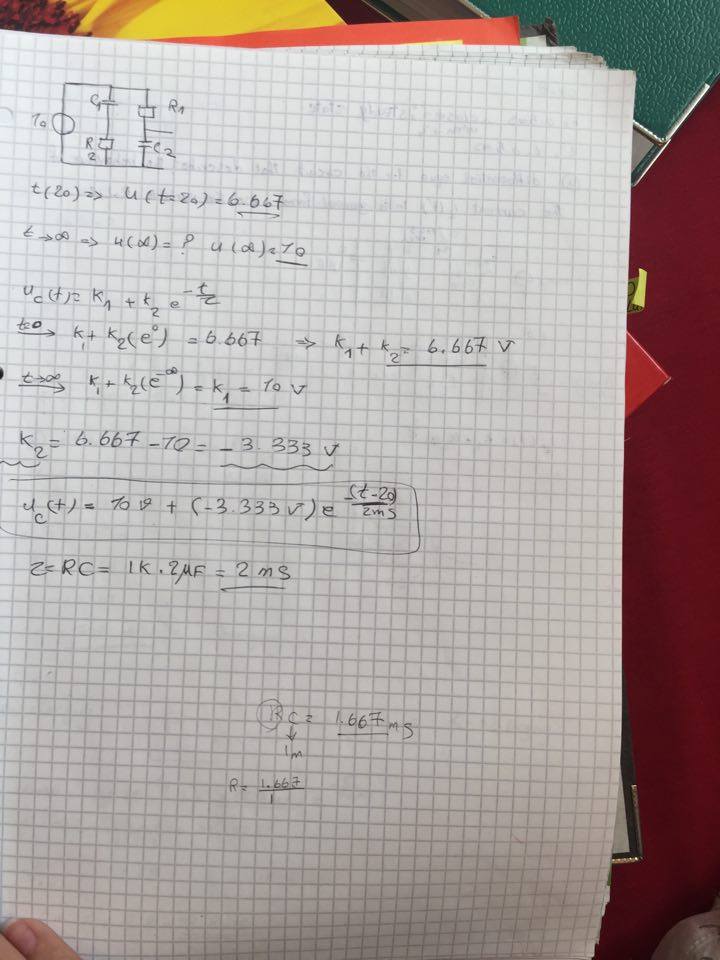 C1 R1
10
R2 C2
t(20) => u(t=20) = 6.667
t→∞ => u(∞) = ? u(∞) = 10
uc(t) = k1 + k2 e^-t/τ
t=0 → k1 + k2(e^0) = 6.667 => k1 + k2 = 6.667 V
t→∞ → k1 + k2(e^-∞) = k1 = 10 V
k2 = 6.667 - 10 = -3.333 V
uc(t) = 10 v + (-3.333 V) e^-(t-20)/2ms
τ = RC = 1K . 2μF = 2 ms
RC = 1.667 ms
↓
1m
R = 1.667/1